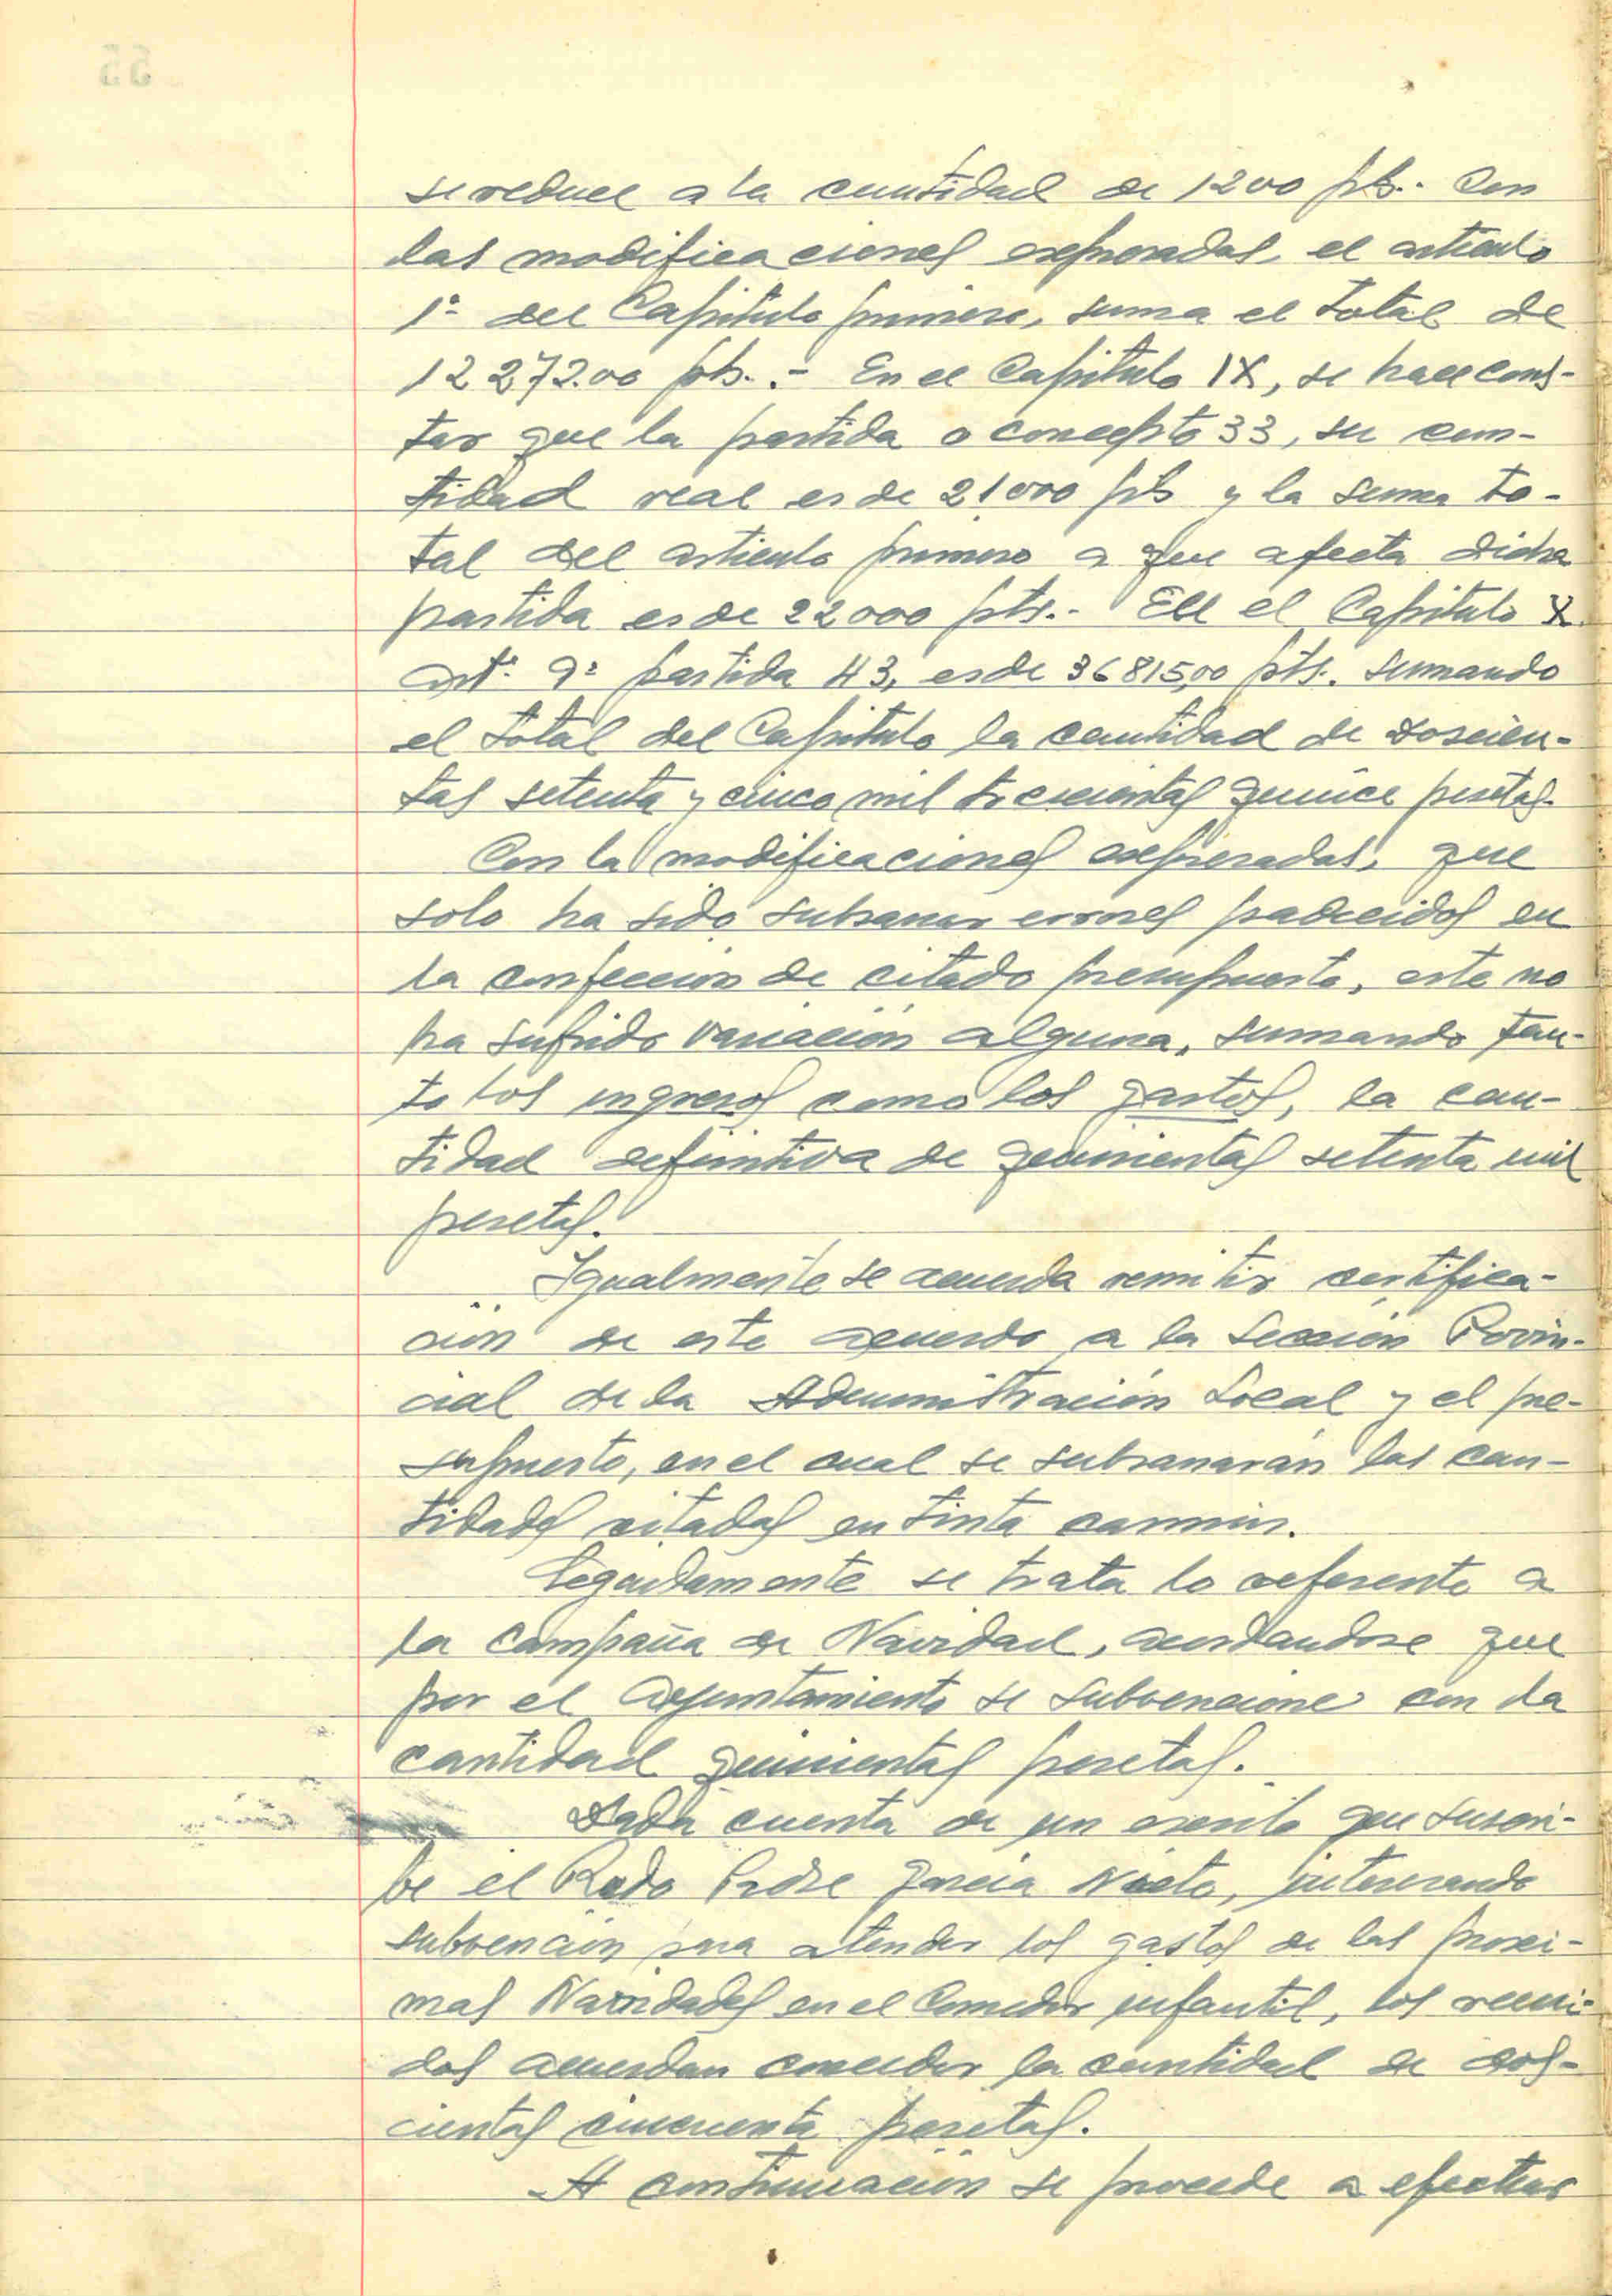 se reduce a la cantidad de 1200 pts.- Con
las modificaciones expresadas, el articulo
1º del Capitulo primero, suma el total de
12272.00 pts..- En el Capitulo IX, se hace cons-
tar que la partida o concepto 33, su can-
tidad real es de 21000 pts y la suma to-
tal del articulo primero a que afecta dicha
partida es de 22000 pts.- En el Capitulo X.
artº 9º partida 43, es de 36815,00 pts. sumando
el total del Capitulo la cantidad de doscien-
tas setenta y cinco mil trescientas quince pesetas.
Con la modificaciones expresadas, que
solo ha sido subsanar errores padecidos en
la confeccion de citado presupuesto, este no
ha sufrido variación alguna, sumando tan-
to los ingresos como los gastos, la can-
tidad definitiva de quinientas setenta mil
pesetas.
Igualmente se acuerda remitir certifica-
ción de este acuerdo a la Sección Provin-
cial de la Administración Local y el pre-
supuesto, en el cual se subsanarán las can-
tidades citadas en tinta carmin.
Seguidamente se trata lo referente a
la campaña de Navidad, acordandose que
por el Ayuntamiento se subvencione con la
cantidad quinientas pesetas.
Dada cuenta de un escrito que suscri-
be el Rvdo Padre Garcia Nieto, interesando
subvención para atender los gastos de las proxi-
mas Navidades en el Comedor infantil, los reuni-
dos acuerdan conceder la cantidad de dos-
cientas cincuenta pesetas.
A continuación se procede a efectuar